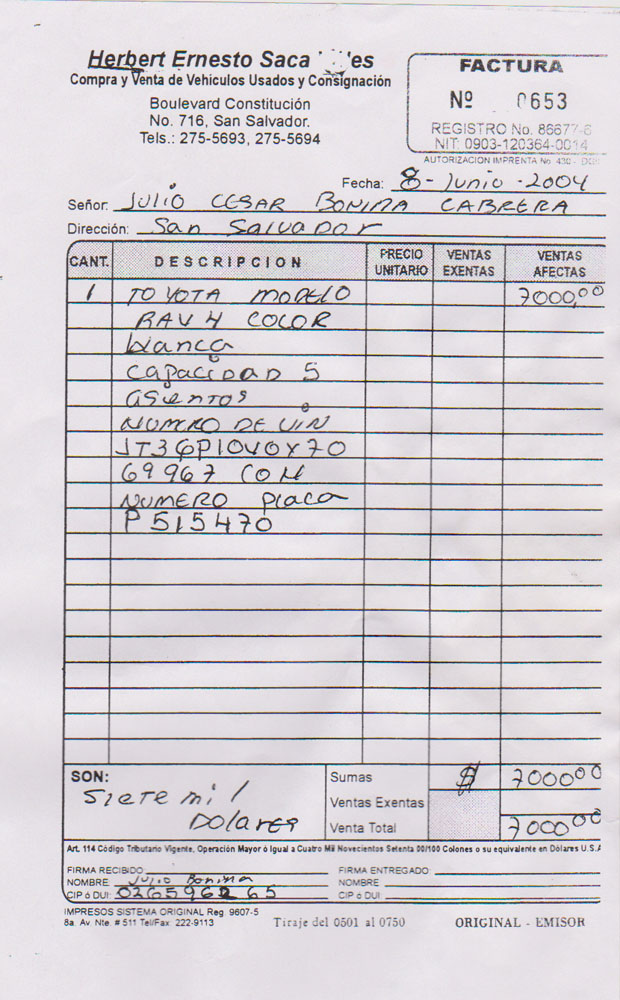 Herbert Ernesto Saca
Compra y Venta de Vehiculos Usados y Consignación
Boulevard Constitución
No. 716, San Salvador.
Tels.: 275-5693, 275-5694
FACTURA
Nº 0653
REGISTRO No. 86677-6
NIT: 0903-120364-0014
AUTORIZACION IMPRENTA No. 430 -
Fecha: 8 - Junio - 2004
Señor: JULIO CESAR BONILLA CABRERA
Dirección: San SALVADOR
CANT. DESCRIPCION PRECIO UNITARIO VENTAS EXENTAS VENTAS AFECTAS
1 TOYOTA MODELO 7000,00
RAV 4 COLOR
blanca
capacidad 5
asientos
NUMERO DE VIN
JT3GP10V0Y70
69967 CON
NUMERO placa
P 515470
SON: Siete mil Dolares
Sumas $ 7000 00
Ventas Exentas
Venta Total 7000 00
Art. 114 Código Tributario Vigente, Operación Mayor ó Igual a Cuatro Mil Novecientos Setenta 00/100 Colones o su equivalente en Dólares U.S.A
FIRMA RECIBIDO: FIRMA ENTREGADO:
NOMBRE Julio Bonilla NOMBRE
CIP ó DUI: 026596265 CIP ó DUI:
IMPRESOS SISTEMA ORIGINAL Reg. 9607-5
8a. Av. Nte. # 511 Tel/Fax: 222-9113 Tiraje del 0501 al 0750 ORIGINAL - EMISOR